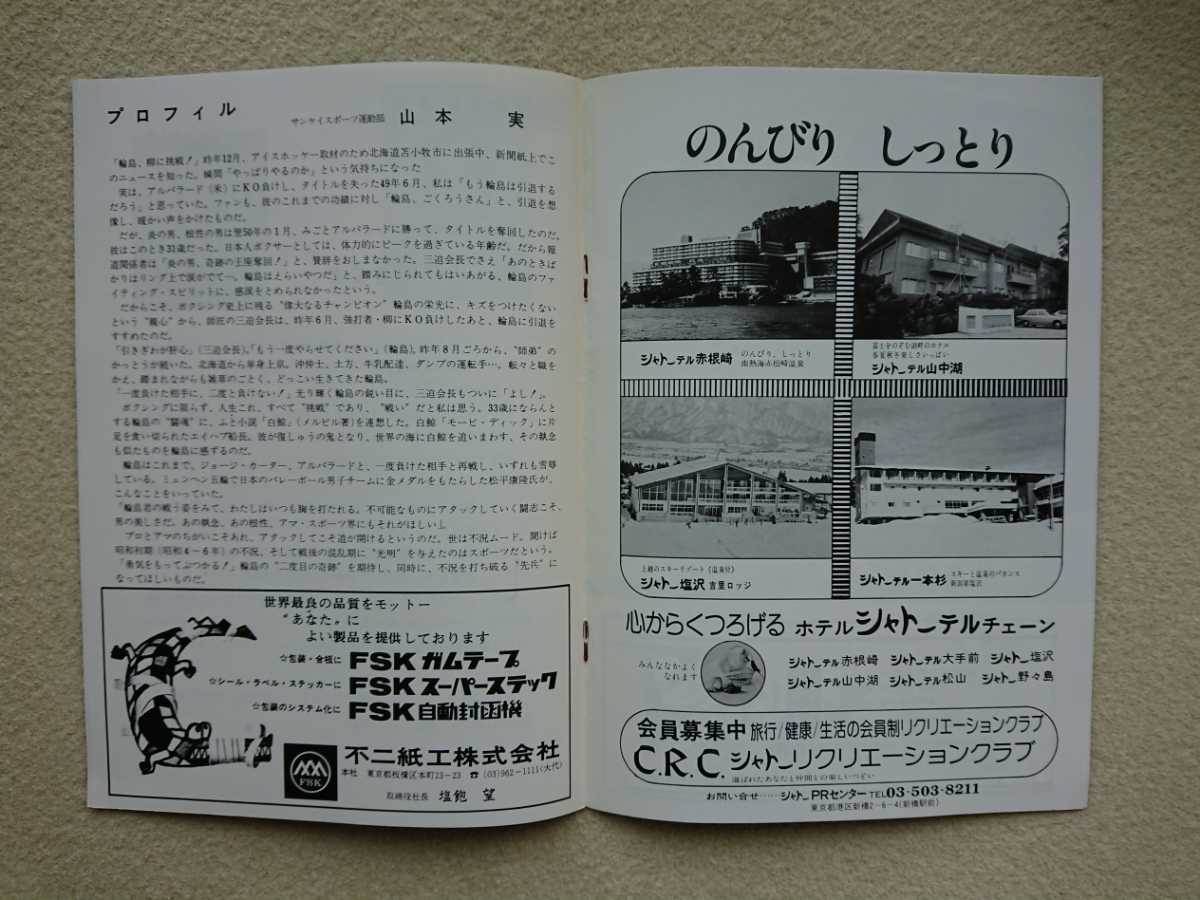 プロフィル
サンケイスポーツ運動部 山本 実
「輪島、柳に挑戦！」昨年12月、アイスホッケー取材のため北海道苫小牧市に出張中、新聞紙上でこ
のニュースを知った。瞬間「やっぱりやるのか」という気持ちになった
実は、アルバラード（米）にＫＯ負けし、タイトルを失った49年６月、私は「もう輪島は引退する
だろう」と思っていた。ファンも、彼のこれまでの功績に対し「輪島、ごくろうさん」と、引退を想
像し、暖かい声をかけたものだ。
だが、炎の男、根性の男は翌50年の１月、みごとアルバラードに勝って、タイトルを奪回したのだ。
彼はこのとき31歳だった。日本人ボクサーとしては、体力的にピークを過ぎている年齢だ。だから報
道関係者は「炎の男、奇跡の王座奪回！」と、賛辞をおしまなかった。三迫会長でさえ「あのときば
かりはリング上で涙がでて―。輪島はえらいやつだ」と、踏みにじられてもはいあがる、輪島のファ
イティング・スピリットに、感涙をとめられなかったという。
だからこそ、ボクシング史上に残る“偉大なるチャンピオン”輪島の栄光に、キズをつけたくない
という“親心”から、師匠の三迫会長は、昨年６月、強打者・柳にＫＯ負けしたあと、輪島に引退を
すすめたのだ。
「引きぎわが肝心」（三迫会長）、「もう一度やらせてください」（輪島）。昨年８月ごろから、“師弟”の
かっとうが続いた。北海道から単身上京。沖仲士、土方、牛乳配達、ダンプの運転手…。転々と職を
かえ、踏まれながらも雑草のごとく、どっこい生きてきた輪島。
「一度負けた相手に、二度と負けない！」光り輝く輪島の鋭い目に、三迫会長もついに「よし！」。
ボクシングに限らず、人生これ、すべて“挑戦”であり、“戦い”だと私は思う。33歳にならんと
する輪島の“闘魂”に、ふと小説「白鯨」（メルビル著）を連想した。白鯨「モービ・ディック」に片
足を食い切られたエイハブ船長。彼が復しゅうの鬼となり、世界の海に白鯨を追いまわす、その執念
も似たものを輪島に感ずるのだ。
輪島はこれまで、ジョージ・カーター、アルバラードと、一度負けた相手と再戦し、いずれも雪辱
している。ミュンヘン五輪で日本のバレーボール男子チームに金メダルをもたらした松平康隆氏が、
こんなことをいっていた。
「輪島君の戦う姿をみて、わたしはいつも胸を打たれる。不可能なものにアタックしていく闘志こそ、
男の美しさだ。あの執念、あの根性、アマ・スポーツ界にもそれがほしい」
プロとアマのちがいこそあれ、アタックしてこそ道が開けるというのだ。世は不況ムード。聞けば
昭和初期（昭和４～６年）の不況、そして戦後の混乱期に“光明”を与えたのはスポーツだという。
「勇気をもってぶつかる！」輪島の“二度目の奇跡”を期待し、同時に、不況を打ち破る“先兵”に
なってほしいものだ。
世界最良の品質をモットー
“あなた”に
よい製品を提供しております
☆包装・合板に FSK ガムテープ
☆シール・ラベル・ステッカーに FSK スーパーステック
☆包装のシステム化に FSK 自動封函機
FSK
不二紙工株式会社
本社 東京都板橋区本町23－23 ☎(03)962－1111(大代)
取締役社長 塩飽 望
のんびり しっとり
シャトーテル赤根崎 のんびり、しっとり
南熱海赤根崎温泉
富士をのぞむ湖畔のホテル
春夏秋冬楽しさいっぱい
シャトーテル山中湖
上越のスキーリゾート（温泉付）
シャトー塩沢 吉里ロッジ
シャトーテル一本杉 スキーと温泉のバカンス
新潟県塩沢
心からくつろげる ホテルシャトーテルチェーン
みんななかよく
なれます
シャトーテル赤根崎 シャトーテル大手前 シャトー塩沢
シャトーテル山中湖 シャトーテル松山 シャトー野々島
会員募集中 旅行/健康/生活の会員制リクリエーションクラブ
C.R.C. シャトーリクリエーションクラブ
選ばれたあなたと仲間との楽しいつどい
お問い合せ……シャトーPRセンター TEL03-503-8211
東京都港区新橋2－6－4(新橋駅前)